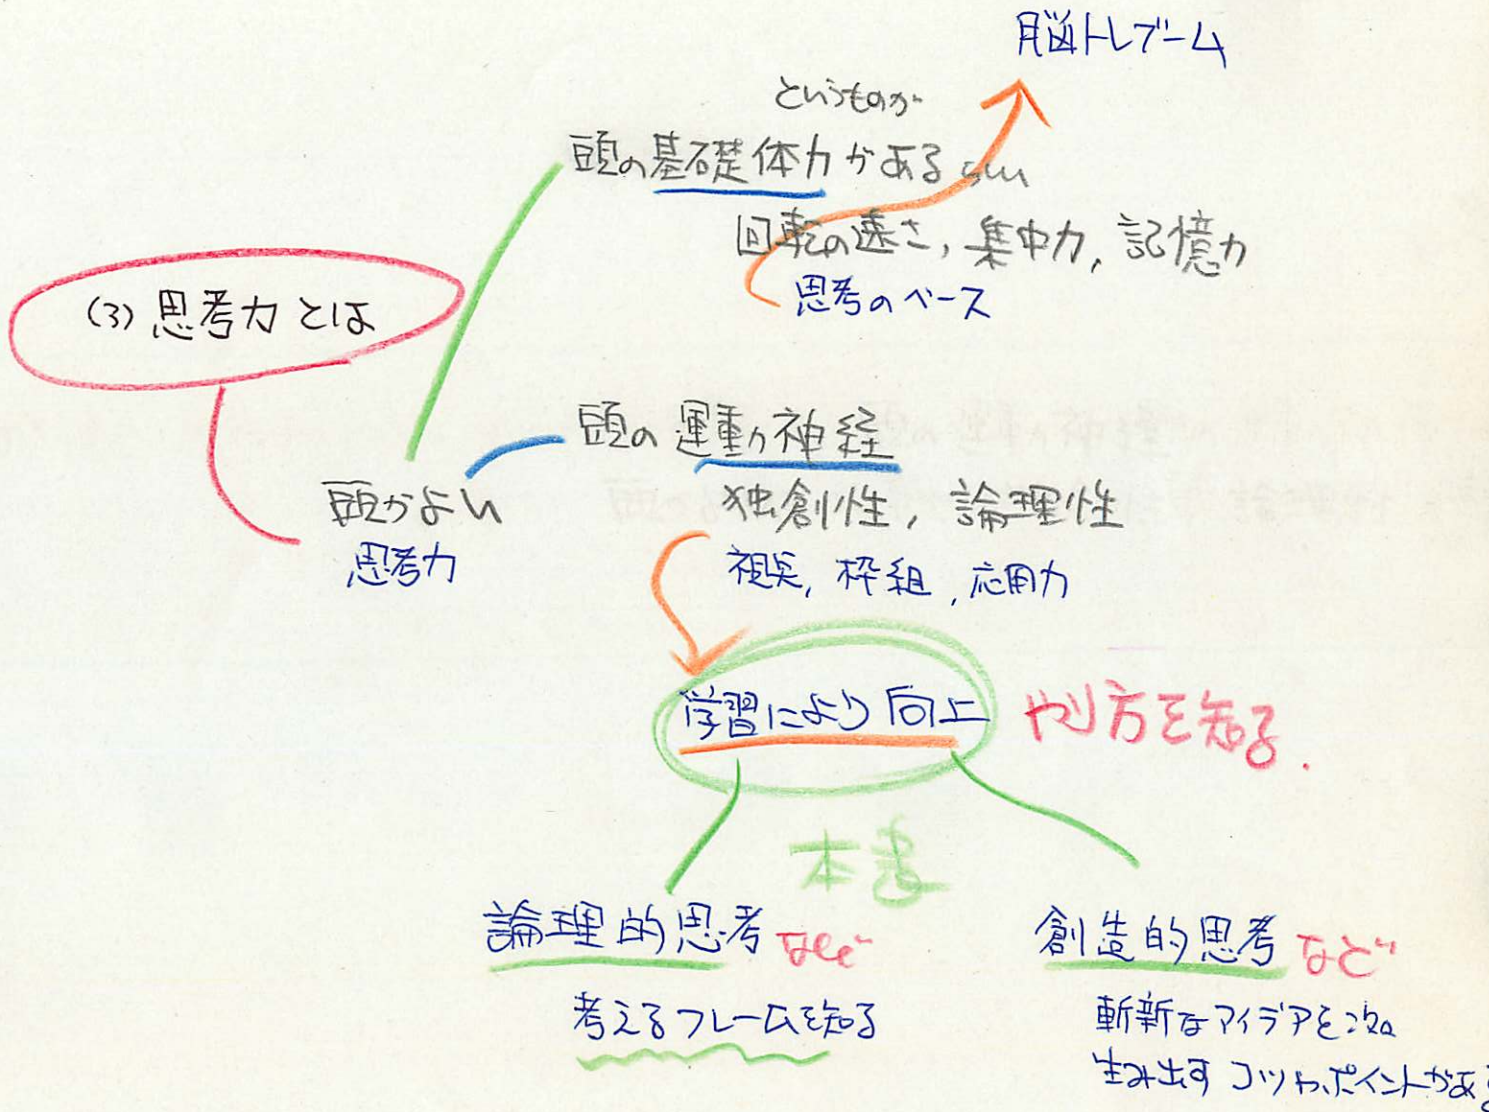 脳トレブーム
というものが
頭の基礎体力があるらしい
回転の速さ, 集中力, 記憶力
思考のベース
(3) 思考力とは
頭の運動神経
頭がよい
思考力
独創性, 論理性
視点, 枠組, 応用力
学習により向上
やり方を知る.
本書
論理的思考 など
考えるフレームを知る
創造的思考 など
斬新なアイデアを
生み出すコツやポイントがある